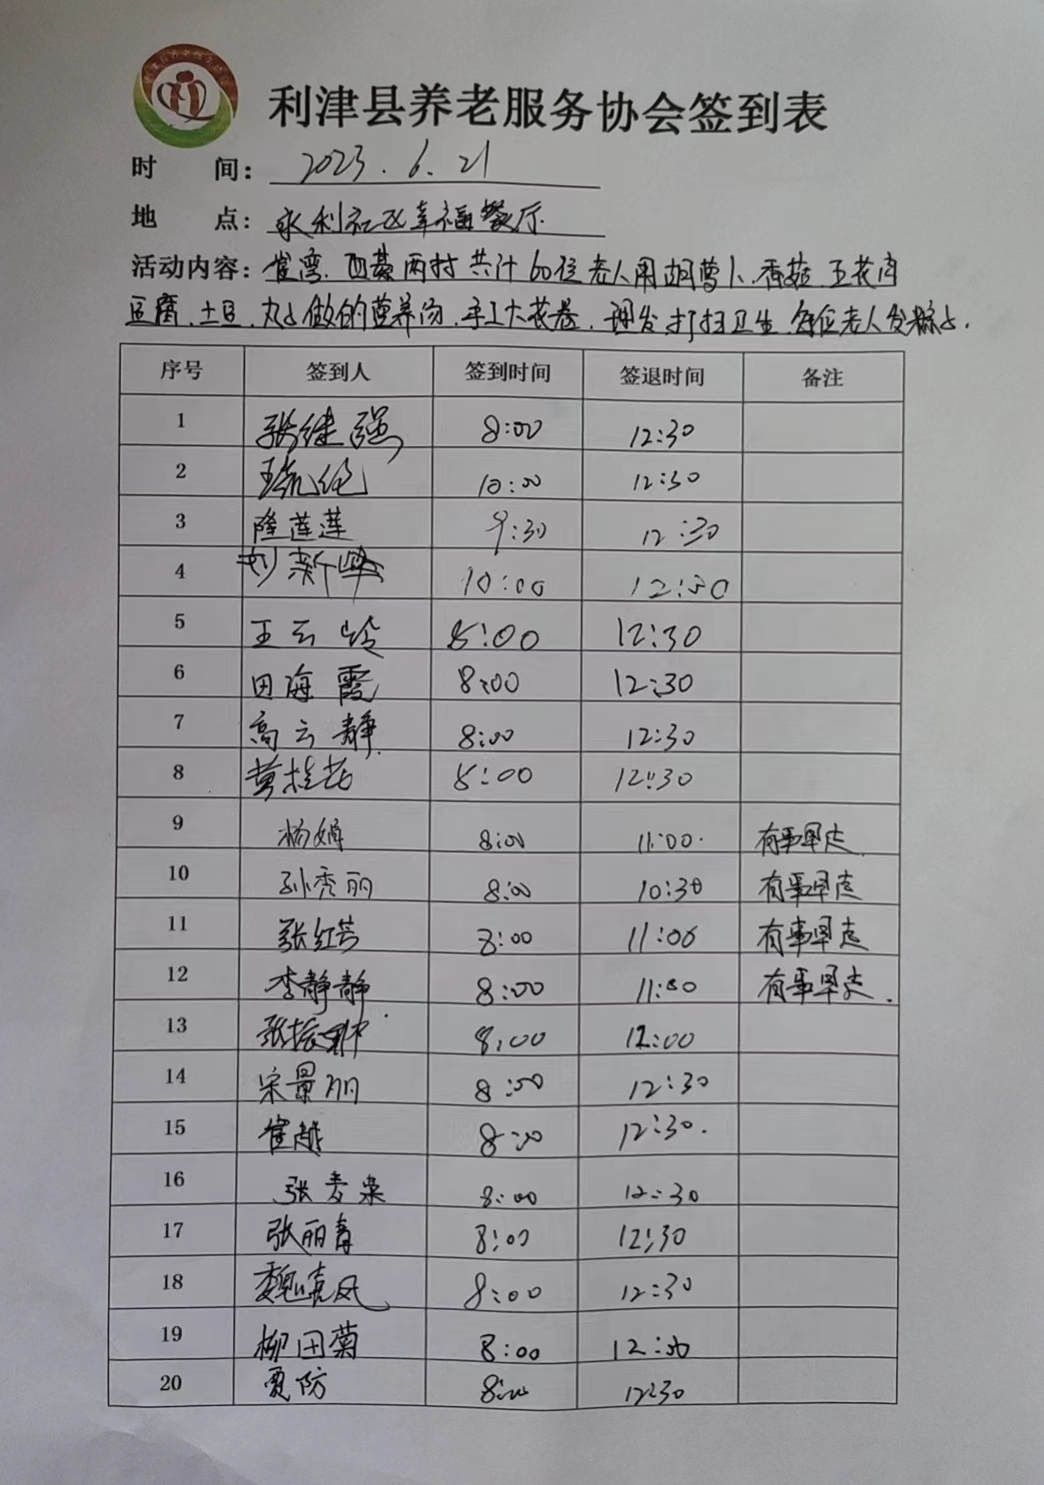 利津县养老服务协会签到表
时 间: 2023.6.21
地 点: 永利社区幸福餐厅
活动内容: 崔湾、西綦两村共计60位老人用胡萝卜、香菇、五花肉
豆腐、土豆、丸子做的营养汤、手工大花卷、理发打扫卫生、每位老人发粽子.
序号 签到人 签到时间 签退时间 备注
1 张继强 8:00 12:30
2 10:00 12:30
3 隆莲莲 9:30 12:30
4 10:00 12:30
5 王云岭 8:00 12:30
6 田海霞 8:00 12:30
7 高云静 8:00 12:30
8 黄桂花 8:00 12:30
9 杨娟 8:00 11:00 有事早走
10 孙秀丽 8:00 10:30 有事早走
11 张红芳 8:00 11:00 有事早走
12 李静静 8:00 11:00 有事早走.
13 8:00 12:00
14 宋景丽 8:00 12:30
15 崔越 8:00 12:30.
16 张 8:00 12:30
17 张丽青 8:00 12:30
18 魏晓凤 8:00 12:30
19 柳田菊 8:00 12:30
20 贾防 8:00 12:30